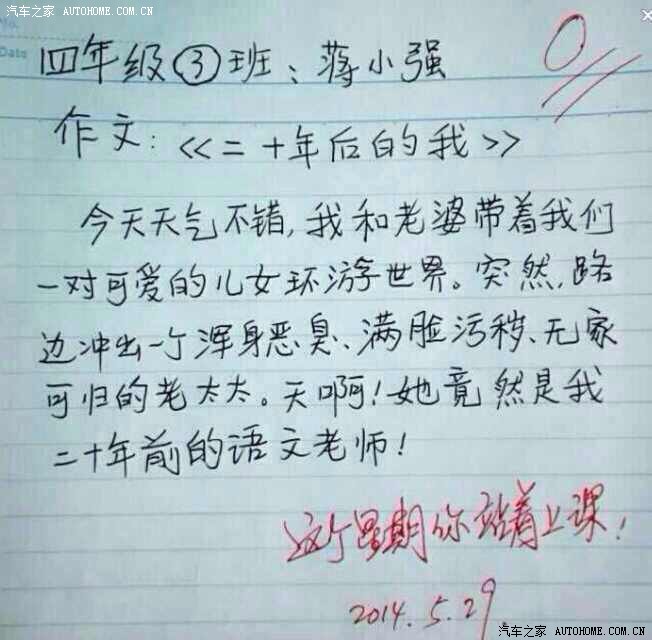 汽车之家 AUTOHOME.COM.CN
No.
Date
0
四年级③班：蒋小强
作文：<<二十年后的我>>
今天天气不错，我和老婆带着我们
一对可爱的儿女环游世界。突然，路
边冲出一个浑身恶臭、满脸污秽、无家
可归的老太太。天啊！她竟然是我
二十年前的语文老师！
这个星期你站着上课！
2014.5.29
汽车之家 AUTOHOME.COM.CN